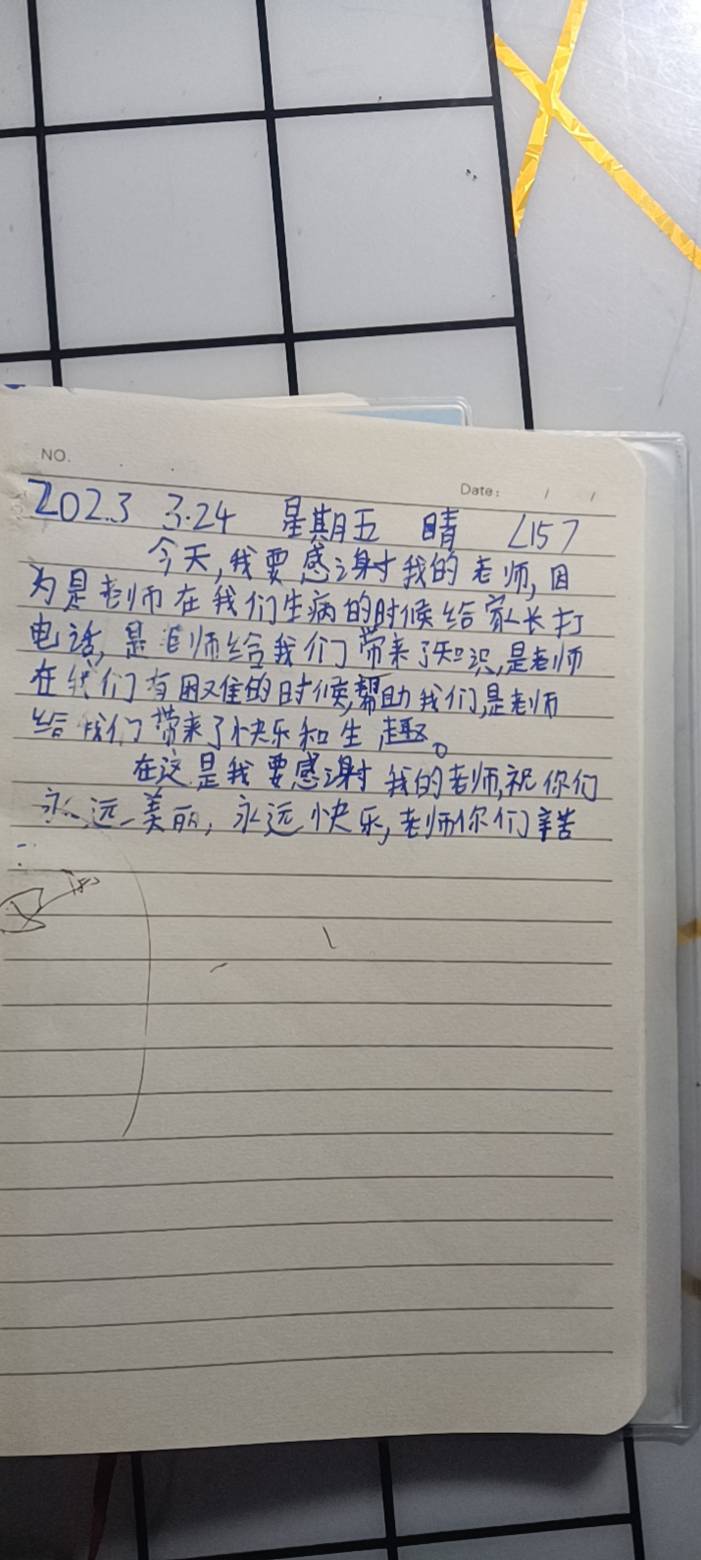 NO.
Date: / /
2023 3.24 星期五 晴 <157
今天,我要感谢我的老师,因
为是老师在我们生病的时候给家长打
电话,是老师给我们带来了知识,是老师
在我们有困难的时候,帮助我们,是老师
给我们带来了快乐和生趣。
在这是我要感谢我的老师,祝你们
永远美丽,永远快乐,老师你们辛苦